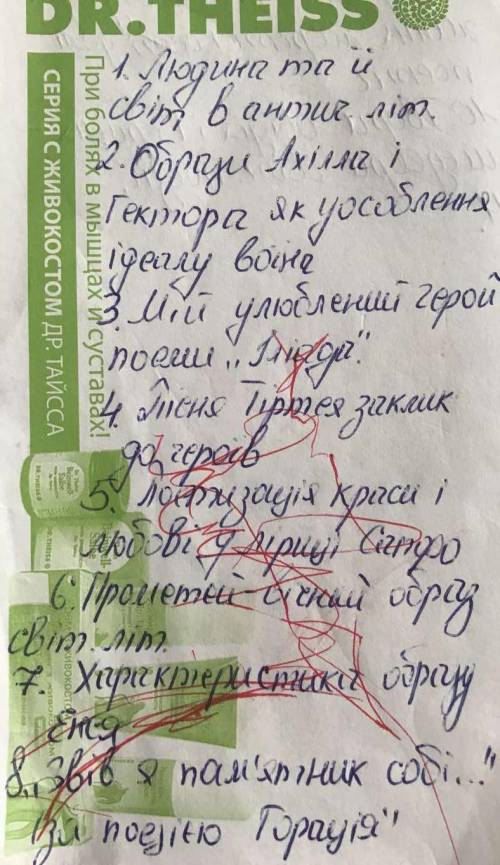 DR.THEISS
При болях в мышцах и суставах!
СЕРИЯ С ЖИВОКОСТОМ ДР. ТАЙССА
1. Людина та її
світ в антич. літ.
2. Образи Ахілла і
Гектора як уособлення
ідеалу воїна
3. Мій улюблений герой
поеми „Іліада".
4. Пісня Тіртея заклик
до героїв
5. Поетизація краси і
любові у ліриці Сапфо
6. Прометей - вічний образ
світ. літ.
7. Характеристика образу
Енея
8. „Звів я пам'ятник собі..."
(за поезією Горація"